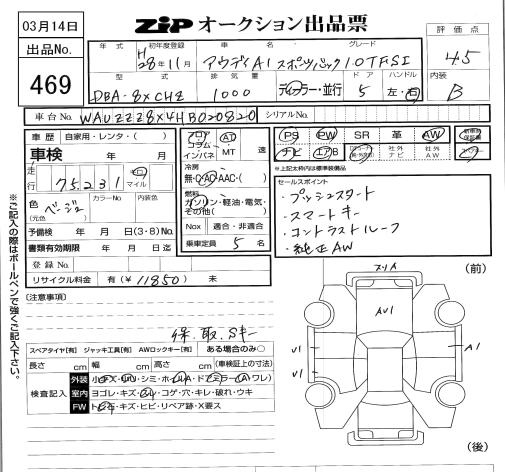 03月14日
出品No.
469
ZIP オークション出品票
評価点
4.5
内装
B
年式 初年度登録 車名 グレード
H28年11月 アウディA1 スポーツバック 1.0TFSI
型式 排気量 ドア ハンドル
DBA-8XCHZ 1000 ディーラー・並行 5 左・右
車台No. WAUZZZ8X4HB020820 シリアルNo.
車歴 自家用・レンタ・( )
車検 年 月
走行 75,231 キロ マイル
色 (元色) ベージュ カラーNo. 内装色
予備検 年 月 日(3・8)No.
書類有効期限 年 月 日迄
登録No.
リサイクル料金 有(¥11850) 未
フロア コラム インパネ AT MT 速
冷房 無・C・AC・AAC・( )
燃料 ガソリン・軽油・電気・その他( )
Nox 適合・非適合
乗車定員 5 名
PS PW SR 革 AW
ナビ エアB 社外ナビ 社外AW
※上記太枠内は標準装備品
セールスポイント
・プッシュスタート
・スマートキー
・コントラストルーフ
・純正AW
※ご記入の際はボールペンで強くご記入下さい。
(注意事項)
保.取.Sキー
スペアタイヤ[有] ジャッキ工具[有] AWロックキー[有] ある場合のみ○
長さ cm 幅 cm 高さ cm (車検証上の寸法)
検査記入
外装
室内 ヨゴレ・キズ・コゲ・穴・キレ・破れ・ウキ
FW トビ石・キズ・ヒビ・リペア跡・X要ス
(前)
スリA
AV1
V1
V1
A1
(後)